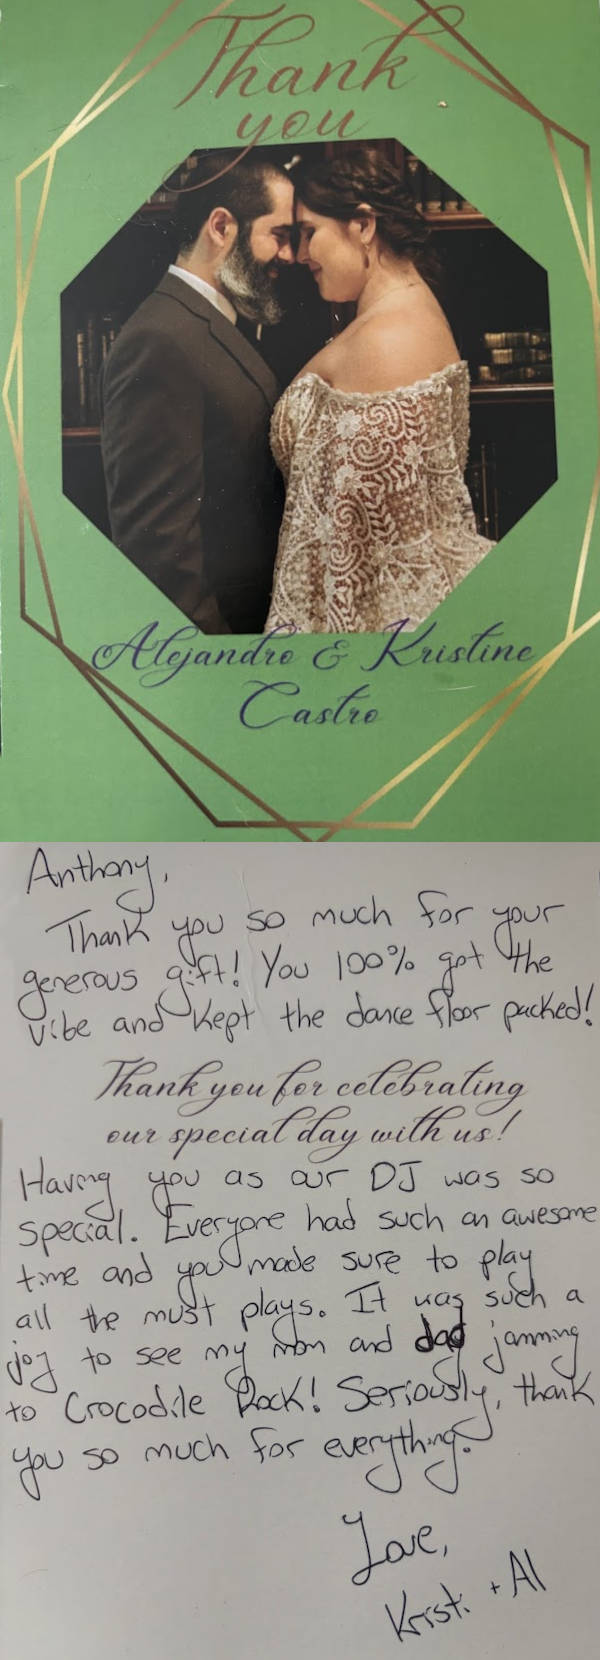 Thank
you
Alejandro & Kristine
Castro
Anthony,
Thank you so much for your
generous gift! You 100% got the
vibe and kept the dance floor packed!
Thank you for celebrating
our special day with us!
Having you as our DJ was so
special. Everyone had such an awesome
time and you made sure to play
all the must plays. It was such a
joy to see my mom and dad jamming
to Crocodile Rock! Seriously, thank
you so much for everything.
Love,
Kristi + Al